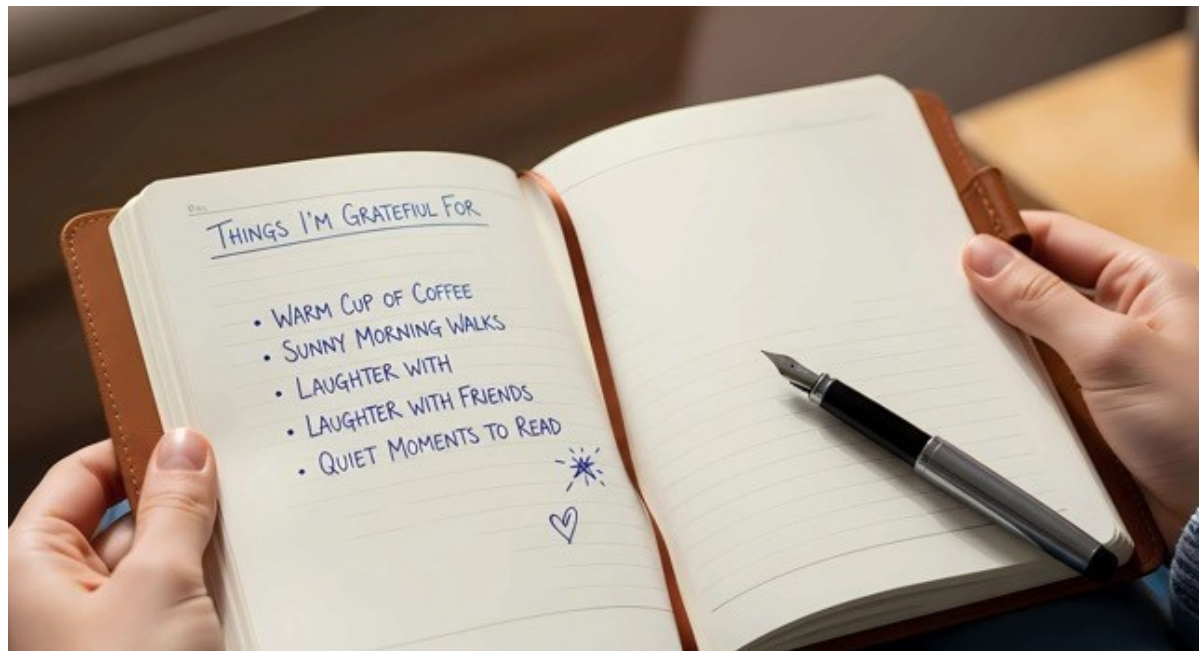 THINGS I'M GRATEFIUL FOR
• WARM CUP OF COFFEE
• SUNNY MORNING WALKS
• LAUGHTER WITH
• LAUGHTER WITH FRIENDS
• QUIET MOMENTS TO READ